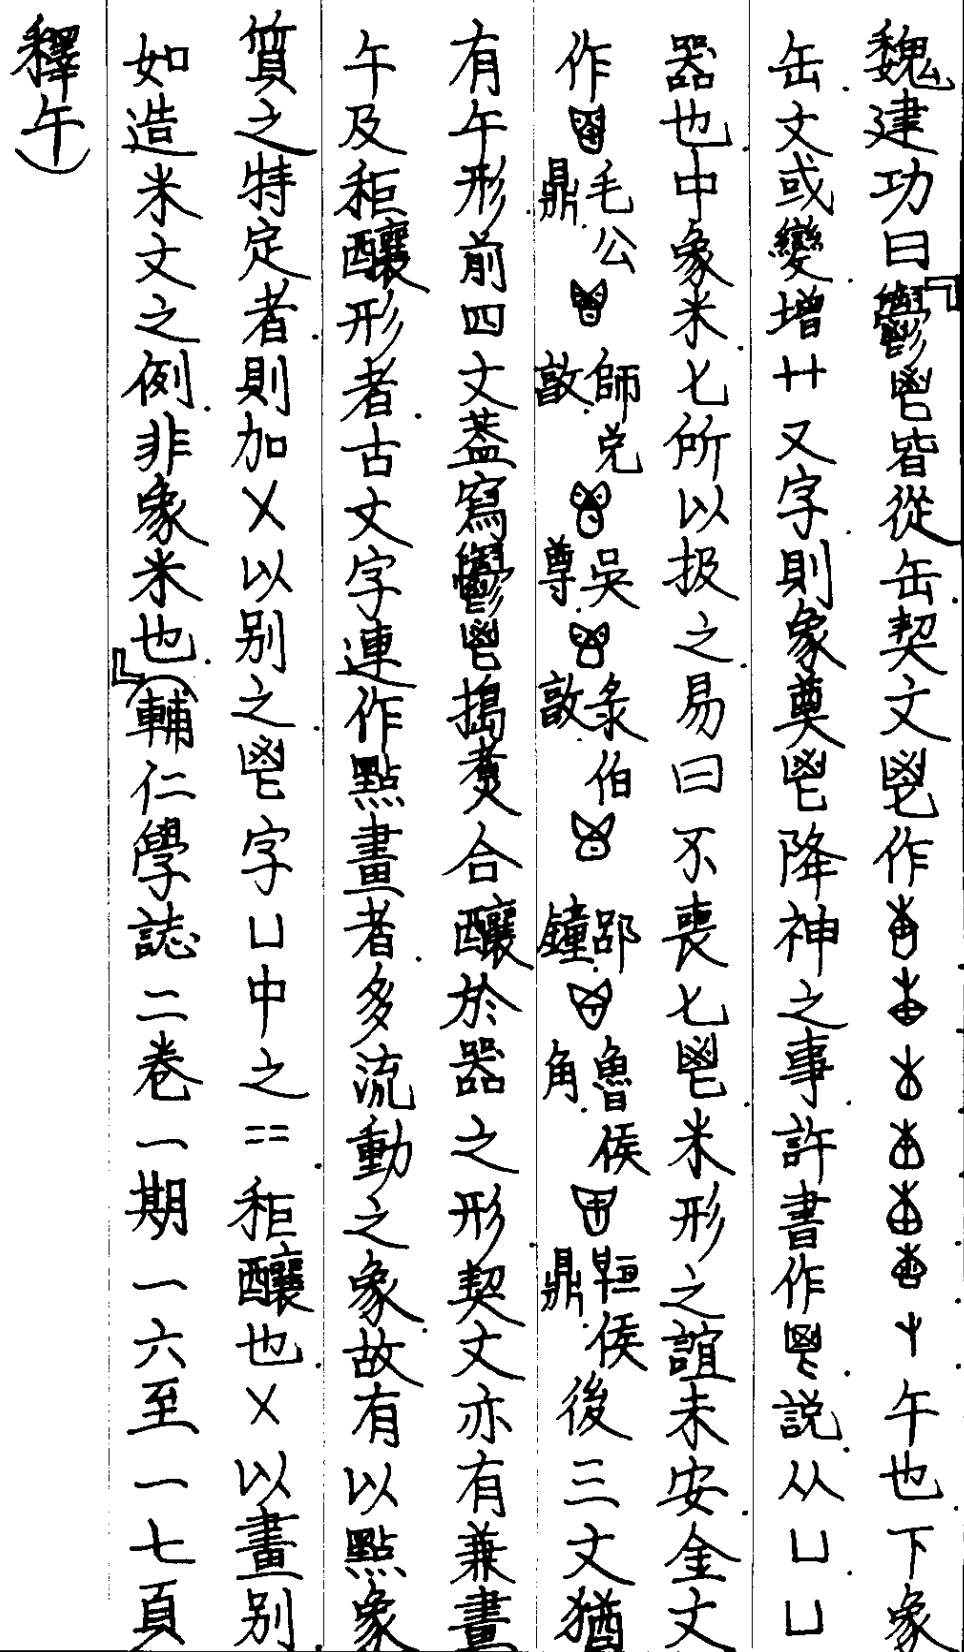 魏建功曰『鬱鬯皆從缶契文鬯作 午也下象
缶文或變增廾又字則象奠鬯降神之事許書作鬯説从凵凵
器也中象米匕所以扱之易曰不喪匕鬯米形之誼未安金文
作 毛公鼎 師兌敦 吳尊 彔伯敦 郘鐘 魯侯角 侯鼎後三文猶
有午形前四文蓋寫鬱鬯搗煑合釀於器之形契文亦有兼畫
午及秬釀形者古文字連作點畫者多流動之象故有以點象
質之特定者則加乂以别之鬯字凵中之 秬釀也乂以畫别
如造米文之例非象米也』(輔仁學誌二卷一期一六至一七頁
釋午)